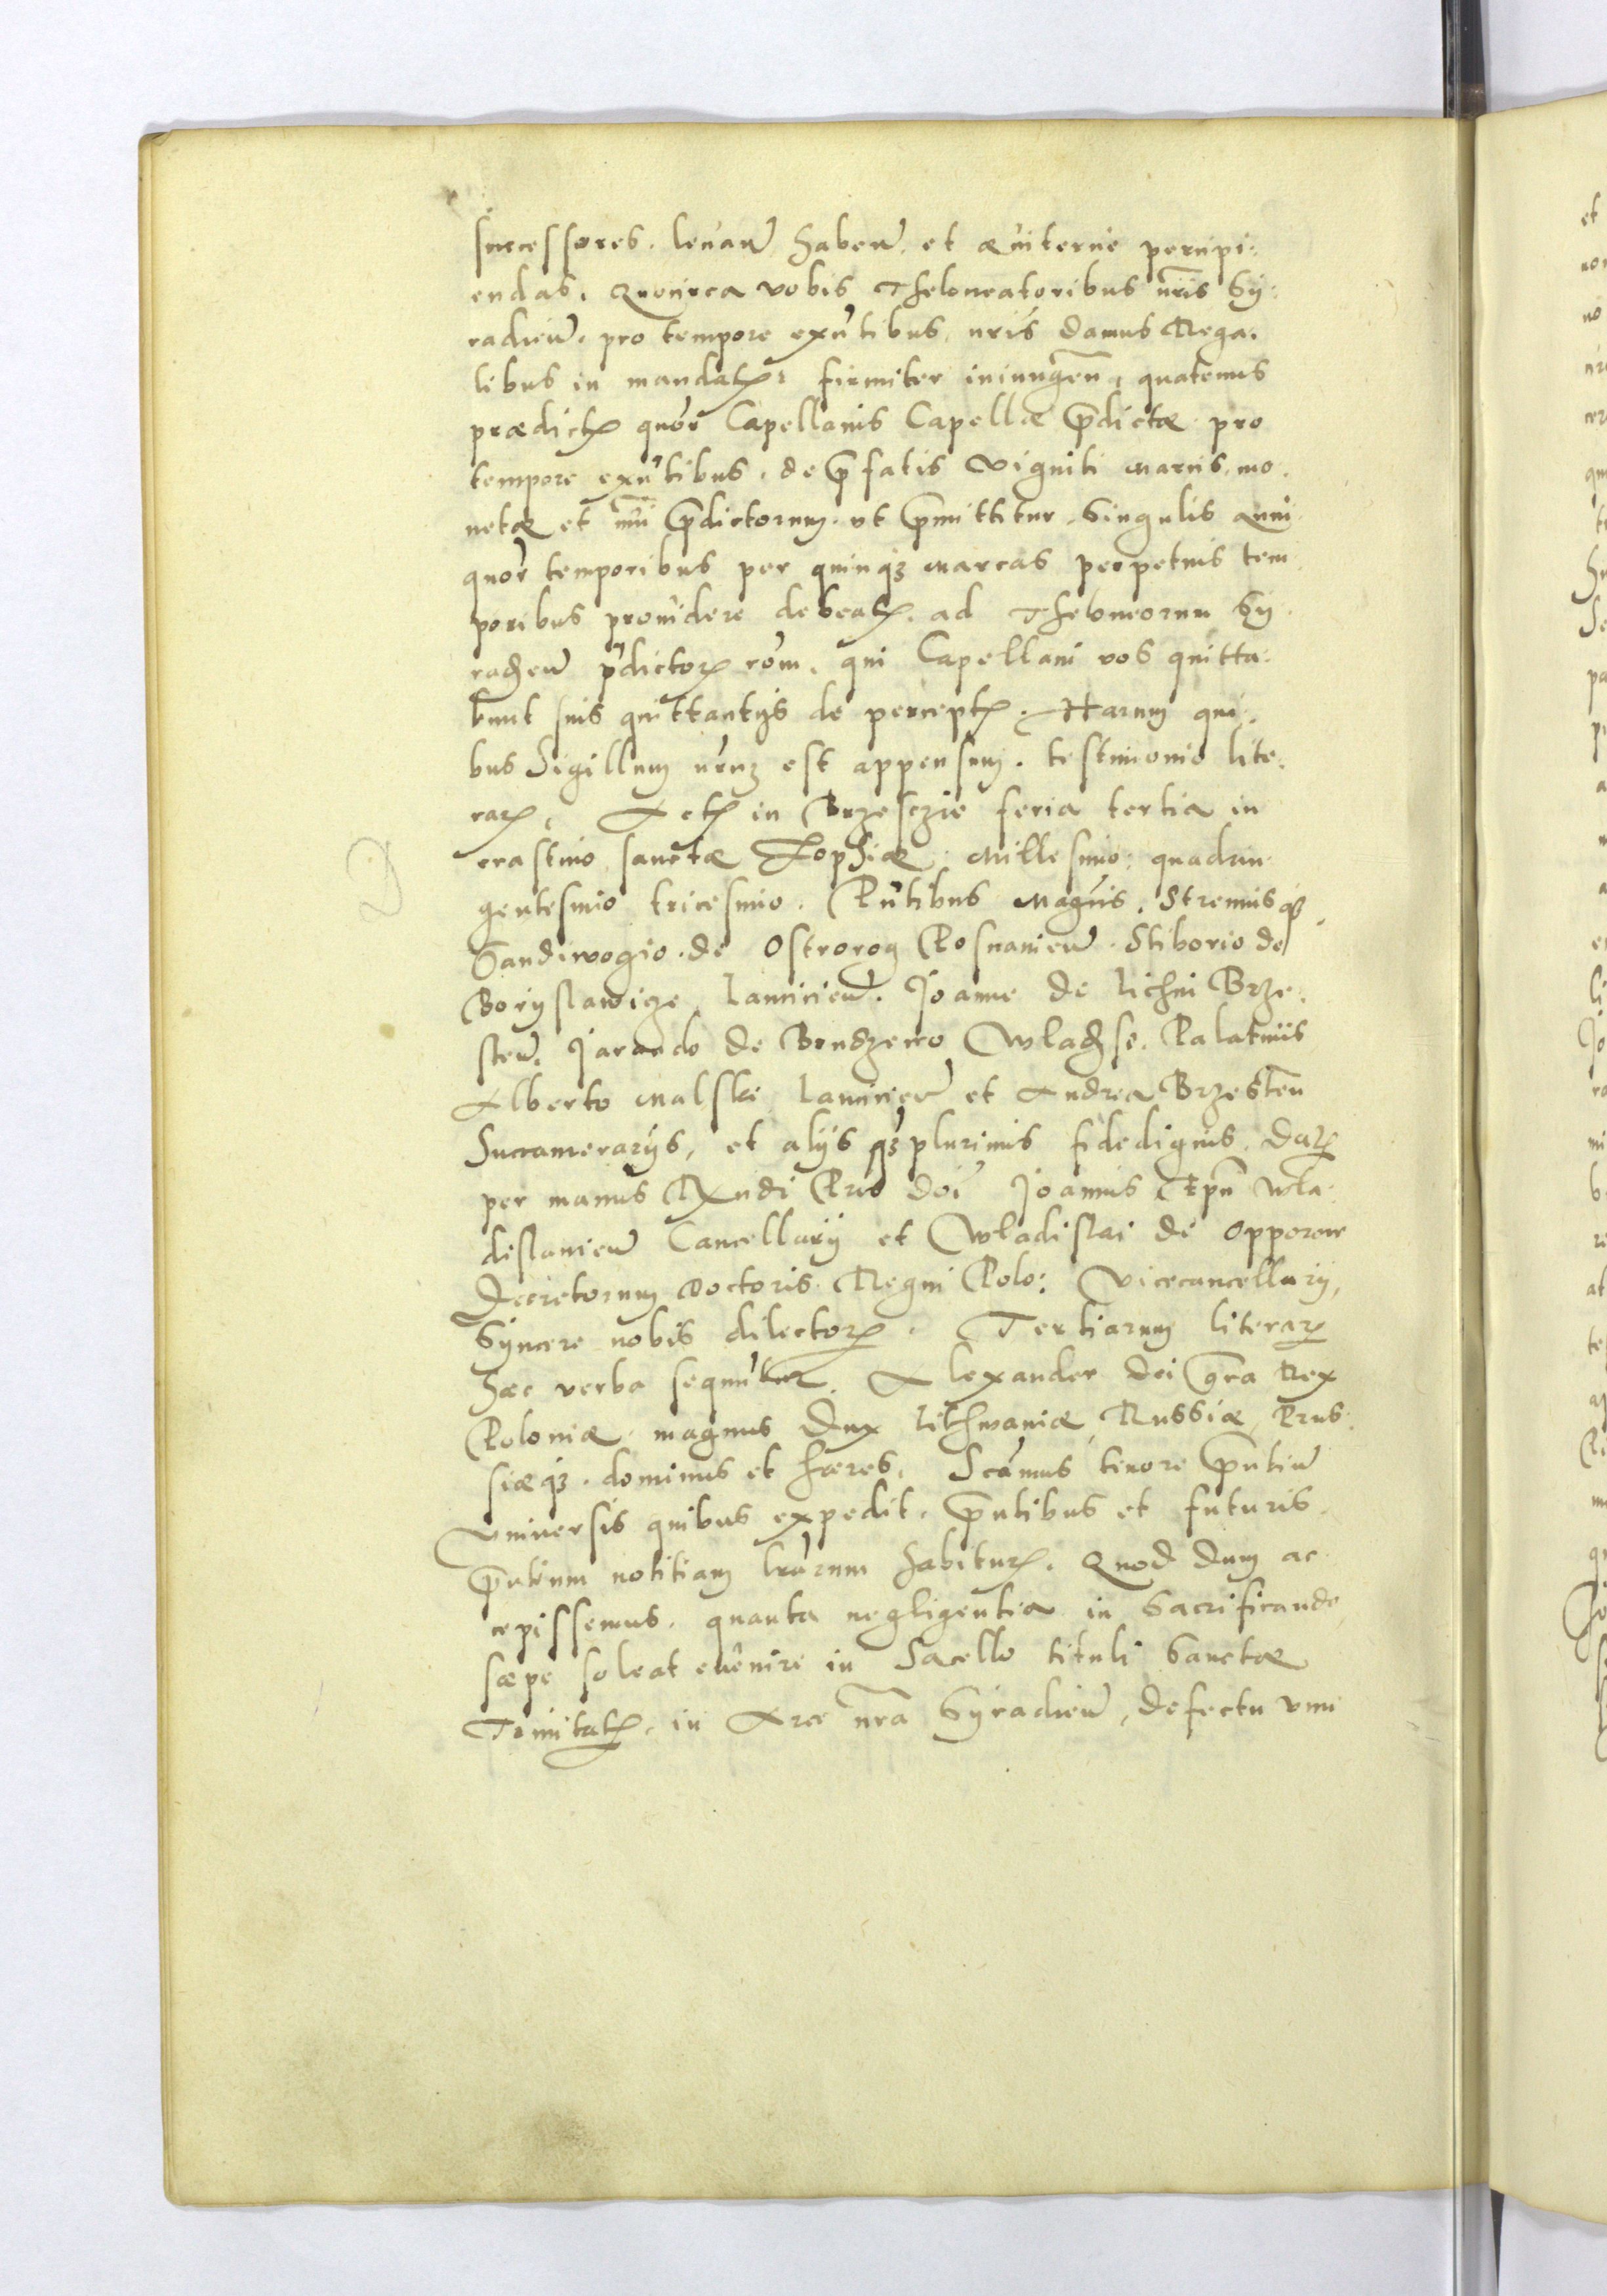 successores. leuan̄ haben̄. et æuiterne percipi-
endas. Quocirca vobis Theloneatoribus nr̄is Sy-
radien̄. pro tempore exn̄tibus, nris damus Rega-
libus in mandatis firmiter iniungen̄, quatenus
prædictis quor Capellanis Capellæ p̄dictæ pro
tempore exn̄tibus. de p̄fatis viginti marcis. mo-
netæ et nūi p̄dictorum. vt p̄mittitur. Singulis anni
quor temporibus per quinqz marcas perpetuis tem-
poribus prouidere debeatis. ad Theloneorum Sy-
radien̄ p̄dictorum rōm. qui Capellani vos quitta-
bunt suis quittantijs de perceptis. Harum qui-
bus Sigillum nr̄uz est appensum. testimonio lite-
rarum. Actum in Brzesczie feria tertia in
crastino sanctæ Zophiæ Millesimo: quadrin-
gentesimo tricesimo. Pn̄tibus Magn̄is, Strenuis qz
Sandiwogio de Ostrorog Posnanien̄. Stiborio de
Boryslawicze Lancicien̄. Joanne de Lichni Brze-
sten̄. Jarando de Brudzewo Wladisl. Palatinis
Alberto Malski Lancicien̄ et Andrea Brzesten̄
Succamerarijs, et alijs qz plurimis fidedignis. Datum
per manus Rx̄ndi Pris doī Joannis Epī Wla-
dislauien̄ Cancellarij et Wladislai de Opporow
Decretorum Doctoris Regni Polo: Vicecancellarij,
Syncere nobis dilectorum. Tertiarum literarum
hæc verba sequūtur. Alexander Dei gr̄a Rex
Poloniæ magnus Dux Lithwaniæ, Russiæ, Prus-
siæqz. dominus et hæres. Scāmus tenore p̄ntiū
vniuersis quibus expedit, p̄ntibus et futuris.
p̄ntium notitiam lrārum habituris. Quod dum ac-
cepissemus. quanta negligentia in Sacrificando
sæpe soleat euenire in Sacello tituli Sanctæ
Trinitatis, in Arce nr̄a Syradien̄, defectu vini
D